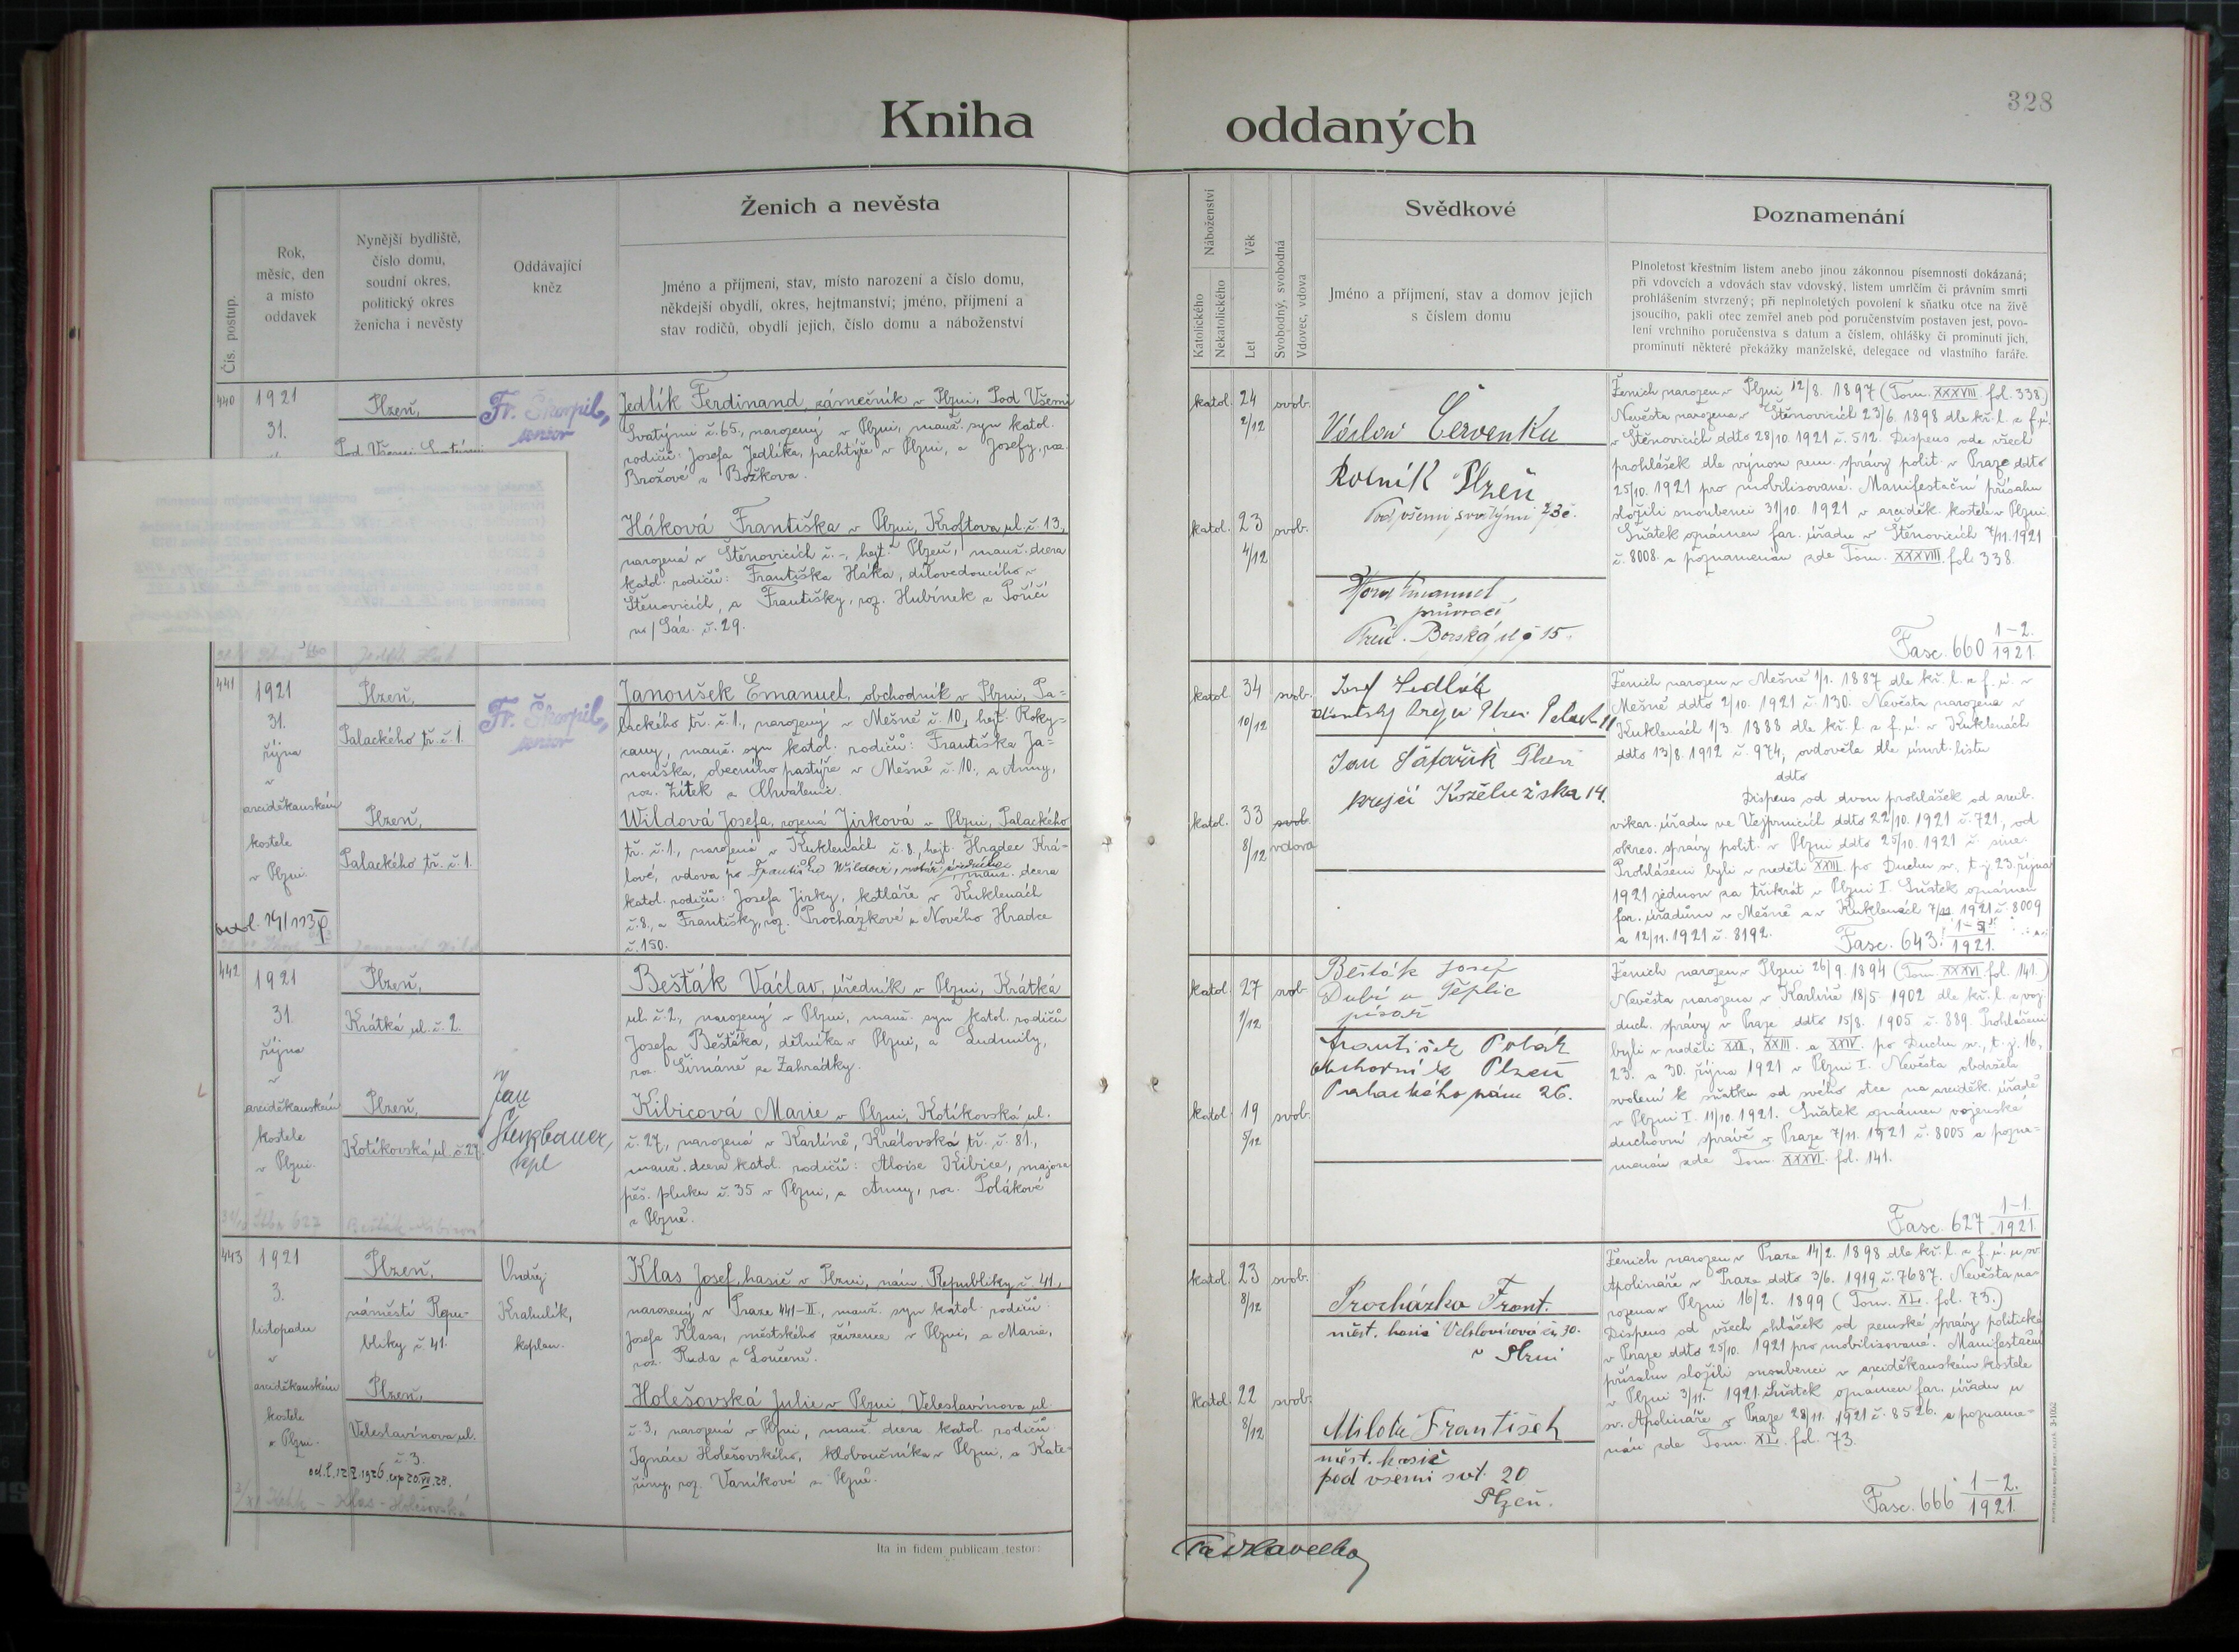 328
Kniha oddaných
Čís. postup.
Rok,
měsíc, den
a místo
oddavek
Nynější bydliště,
číslo domu,
soudní okres,
politický okres
ženicha i nevěsty
Oddávající
kněz
Ženich a nevěsta
Jméno a příjmení, stav, místo narození a číslo domu,
někdejší obydlí, okres, hejtmanství; jméno, příjmení a
stav rodičů, obydlí jejich, číslo domu a náboženství
Náboženství
Katolického
Nekatolického
Věk
Let
Svobodný, svobodná
Vdovec, vdova
Svědkové
Jméno a příjmení, stav a domov jejich
s číslem domu
Poznamenání
Plnoletost křestním listem anebo jinou zákonnou písemností dokázaná;
při vdovcích a vdovách stav vdovský, listem umrlčím či právním smrti
prohlášením stvrzený; při neplnoletých povolení k sňatku otce na živě
jsoucího, pakli otec zemřel aneb pod poručenstvím postaven jest, povo-
lení vrchního poručenstva s datum a číslem, ohlášky či prominutí jich,
prominutí některé překážky manželské, delegace od vlastního faráře.
440
1921
31.
Plzeň,
Pod Všemi Svatými
Fr. Škorpil,
senior
Jedlík Ferdinand, zámečník v Plzni, Pod Všemi
Svatými č. 65., narozený v Plzni, manž. syn katol.
rodičů: Josefa Jedlíka, pachtýře v Plzni, a Josefy, roz.
Brožové z Božkova.
Háková Františka v Plzni, Kroftova ul. č. 13.,
narozená v Štěnovicích č. -, hejt. Plzeň, manž. dcera
katol. rodičů: Františka Háka, dílovedoucího v
Štěnovicích, a Františky, roz. Hubínek z Poříčí
n/Sáz. č. 29.
katol. 24 2/12 svob.
katol. 23 4/12 svob.
Václav Červenka
Rolník Plzeň
Pod všemi svatými 23č.
Emanuel
Plzeň. Borská ul č 15.
Ženich narozen v Plzni 12/8. 1897 (Tom. XXXVIII. fol. 338.)
Nevěsta narozena v Štěnovicích 23/6. 1898 dle kř. l. z f. ú.
v Štěnovicích ddto 28/10. 1921 č. 512. Dispens ode všech
prohlášek dle výnosu zem. správy polit. v Praze ddto
25/10. 1921 pro mobilisované. Manifestační přísahu
složili snoubenci 31/10. 1921 v arciděk. kostele v Plzni.
Sňatek oznámen far. úřadu v Štěnovicích 7/11. 1921
č. 8008. a poznamenán zde Tom. XXXVIII. fol. 338.
Fasc. 660 1-2. 1921.
441
1921
31.
října
v
arciděkanském
kostele
v Plzni.
Plzeň,
Palackého tř. č. 1.
Plzeň,
Palackého tř. č. 1.
Fr. Škorpil,
senior
Janoušek Emanuel, obchodník v Plzni, Pa-
lackého tř. č. 1., narozený v Mešně č. 10., hejt. Roky-
cany, manž. syn katol. rodičů: Františka Ja-
nouška, obecního pastýře v Mešně č. 10., a Anny,
roz. Zítek z Chválenic.
Wildová Josefa, rozená Jirková v Plzni, Palackého
tř. č. 1., narozená v Kuklenách č. 8., hejt. Hradec Krá-
lové, vdova po Františku Wildovi, manž. dcera
katol. rodičů: Josefa Jirky, kotláře v Kuklenách
č. 8., a Františky, roz. Procházkové z Nového Hradce
č. 150.
katol. 34 10/12 svob.
katol. 33 8/12 svob. vdova
Josef Sedlák
Jan Šafařík Plzeň
krejčí Koželužská 14.
Ženich narozen v Mešně 1/1. 1887 dle kř. l. z f. ú. v
Mešně ddto 2/10. 1921 č. 130. Nevěsta narozena v
Kuklenách 1/3. 1888 dle kř. l. z f. ú. v Kuklenách
ddto 13/8. 1912 č. 974, ovdověla dle úmrt. listu
ddto
Dispens od dvou prohlášek od arcib.
vikar. úřadu ve Vejprnicích ddto 22/10. 1921 č. 721., od
okres. správy polit. v Plzni ddto 25/10. 1921 č. sine.
Prohlášeni byli v neděli XXIII. po Duchu sv., t. j. 23. října
1921 jednou za třikrát v Plzni I. Sňatek oznámen
far. úřadům v Mešně a v Kuklenách 7/11. 1921 č. 8009
a 12/11. 1921 č. 8192.
Fasc. 643. 1921.
442
1921
31.
října
v
arciděkanském
kostele
v Plzni.
Plzeň,
Krátká ul. č. 2.
Plzeň,
Kotíkovská ul. č. 27.
Jan
kpl
Bešťák Václav, úředník v Plzni, Krátká
ul. č. 2., narozený v Plzni, manž. syn katol. rodičů
Josefa Bešťáka, dělníka v Plzni, a Ludmily,
roz. Šimáně ze Zahrádky.
Kibicová Marie v Plzni, Kotíkovská ul.
č. 27., narozená v Karlíně, Královská tř. č. 81.,
manž. dcera katol. rodičů: Aloise Kibice, majora
pěš. pluku č. 35 v Plzni, a Anny, roz. Polákové
z Plzně.
katol. 27 1/12 svob.
katol. 19 5/12 svob.
Bešťák Josef
Dubí u Teplic
písař
František Polák
obchodník Plzeň
Palackého nám 26.
Ženich narozen v Plzni 26/9. 1894 (Tom. XXXVI. fol. 141.)
Nevěsta narozena v Karlíně 18/5. 1902 dle kř. l. z voj.
duch. správy v Praze ddto 15/8. 1905 č. 889. Prohlášeni
byli v neděli XXII., XXIII. a XXIV. po Duchu sv., t. j. 16.,
23. a 30. října 1921 v Plzni I. Nevěsta obdržela
svolení k sňatku od svého otce na arciděk. úřadě
v Plzni I. 11/10. 1921. Sňatek oznámen vojenské
duchovní správě v Praze 7/11. 1921 č. 8005 a pozna-
menán zde Tom. XXXVI. fol. 141.
Fasc. 627 1-1. 1921.
443
1921
3.
listopadu
v
arciděkanském
kostele
v Plzni.
Plzeň,
náměstí Repu-
bliky č. 41.
Plzeň,
Veleslavínova ul.
č. 3.
Ondřej
Krahulík,
kaplan.
Klas Josef, hasič v Plzni, nám. Republiky č. 41,
narozený v Praze 441-II., manž. syn katol. rodičů
Josefa Klasa, městského zřízence v Plzni, a Marie,
roz. Ruda z Loučeně.
Holešovská Julie v Plzni, Veleslavínova ul.
č. 3., narozená v Plzni, manž. dcera katol. rodičů
Ignáce Holešovského, kloboučníka v Plzni, a Kate-
řiny, roz. Vaníkové z Plzně.
katol. 23 8/12 svob.
katol. 22 8/12 svob.
Procházka Frant.
měst. hasič
v Plzni
Milota František
měst. hasič
pod všemi svat. 20
Plzeň.
Ženich narozen v Praze 14/2. 1898 dle kř. l. z f. ú. u sv.
Apolináře v Praze ddto 3/6. 1919 č. 7687. Nevěsta na-
rozena v Plzni 16/2. 1899 (Tom. XL. fol. 73.)
Dispens od všech ohlášek od zemské správy politické
v Praze ddto 25/10. 1921 pro mobilisované. Manifestační
přísahu složili snoubenci v arciděkanském kostele
v Plzni 3/11. 1921. Sňatek oznámen far. úřadu u
sv. Apolináře v Praze 28/11. 1921 č. 8526. a pozname-
nán zde Tom. XL. fol. 73.
Fasc. 666 1-2. 1921.
Ita in fidem publicam testor: